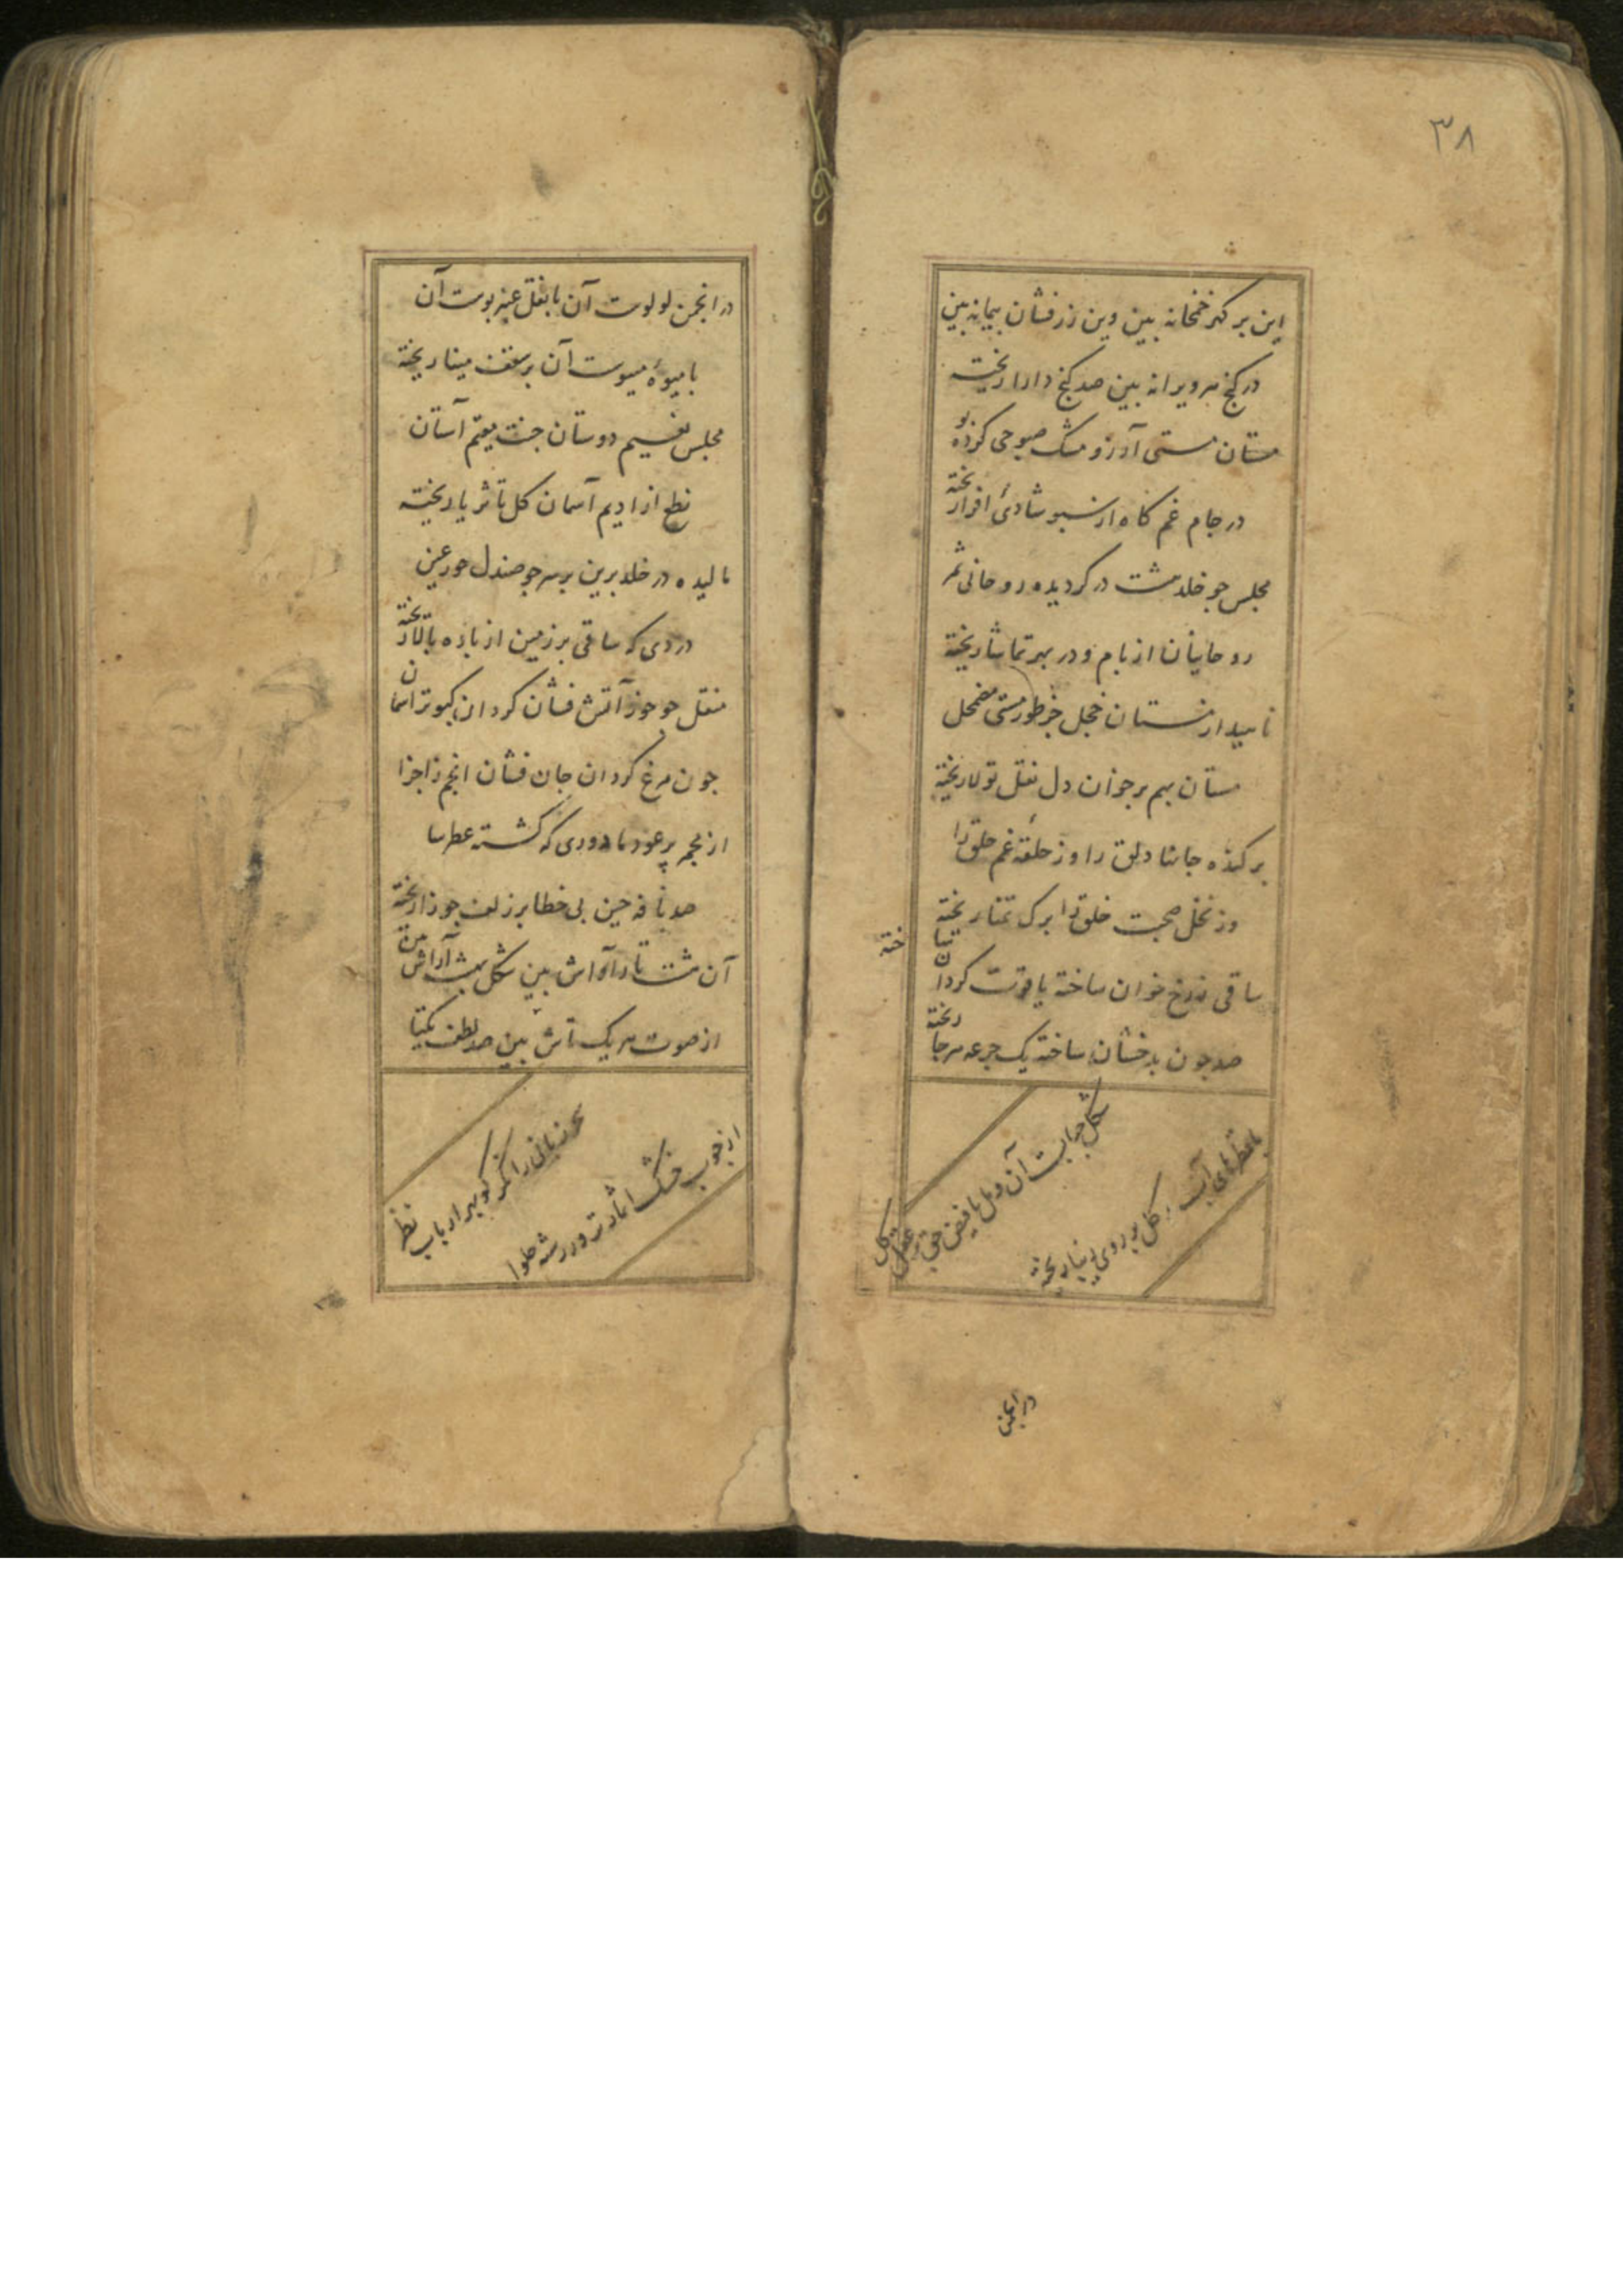 ٣٨
این بر کهر خمخانه بین وین زرفشان پیمانه بین
در کنج هر ویرانه بین صد کنج دارا ریخته
مستان مستی آرزو مشک صبوحی کرده بو
در جام غم کاه از سبو شادئ افزا ریخته
مجلس جو خلد مشت در کردیده روحانی ثمر
روحانیان از بام و در بهر تماشا ریخته
ناهید از مستان خجل خر طور مستی مضمحل
مستان بهم بر خوان دل نقل تولا ریخته
بر کنده جانها دلق را وز حلقه غم حلق را
وز نخل صحبت خلق را برک تمنا ریخته
ساقی ز رخ خوان ساخته یاقوت کردان
صد جون بدخشان ساخته یک جرعه هر جا ریخته
شکل حبابست آن و مل یا فیض حق بر عقل کل
یا قطرهای آب کل بر روی ریخته
در انجمن
در انجمن لولوست آن یا نقل عنبر بوست آن
یا میوهٔ مینوست آن بر سقف مینا ریخته
مجلس نعیم دوستان جنت مقیم آستان
نطع از ادیم آسمان کل تا ثریا ریخته
مالیده در خلد برین بر سر جو صندل حور عین
دردی که ساقی بر زمین از باده بالا ریخته
منقل جو جوز آتش فشان کردان کبوتر آسمان
جون مرغ کردان جان فشان انجم ز اجزا
از مجمر پر عود ما دودی که کشته عطرسا
صد نافه جین بی خطا بر زلف جوزا ریخته
آن هشت تا بین شکل بهشت آراش بین
از صوت هر یک تاش بین صد لطف یکتا
از جوب خشک ریشه حلوا